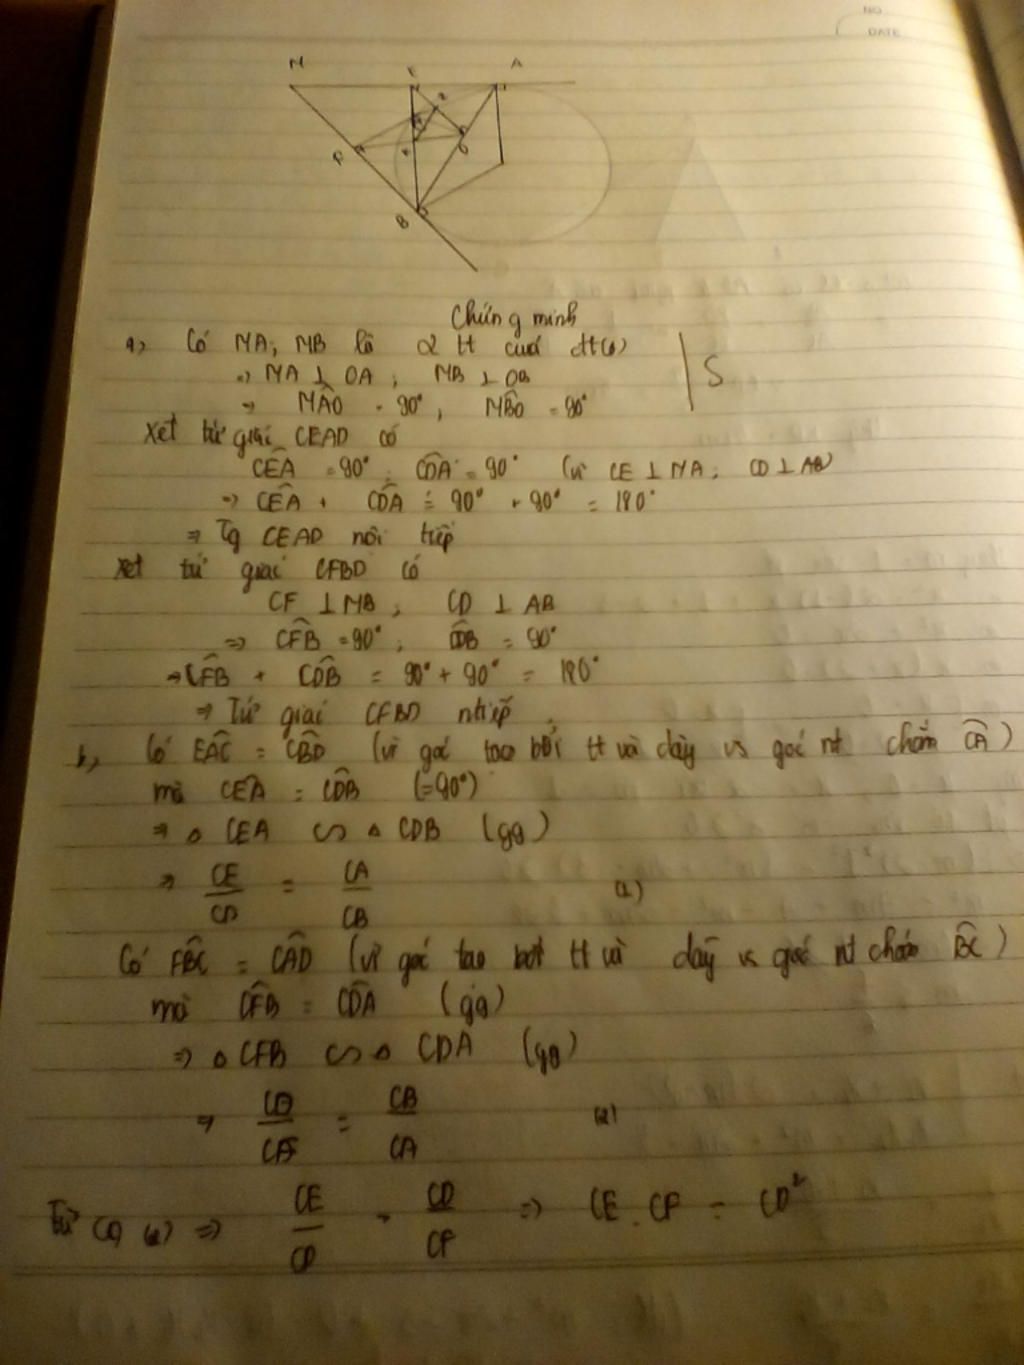 NO
DATE
M
E
A
F
B
Chứng minh
a, Có MA, MB là 2 tt của đtt(o)
=> MA ⊥ OA ; MB ⊥ OB
=> MÂO = 90° , MB̂O = 90°
S
Xét tứ giác CEAD có
CÊA = 90° ; CD̂A = 90° (vì CE ⊥ MA ; CD ⊥ AB)
=> CÊA + CD̂A = 90° + 90° = 180°
=> Tg CEAD nội tiếp
Xét tứ giác CFBD có
CF ⊥ MB ; CD ⊥ AB
=> CF̂B = 90° ; CD̂B = 90°
=> CF̂B + CD̂B = 90° + 90° = 180°
=> Tứ giác CFBD ntiếp
b, Có EÂC = CB̂D (vì góc tạo bởi tt và dây vs góc nt chắn CA)
mà CÊA = CD̂B (=90°)
=> Δ CEA ∽ Δ CDB (gg)
=> CE/CD = CA/CB (1)
Có FB̂C = CÂD (vì góc tạo bởi tt và dây vs góc nt chắn BC)
mà CF̂B = CD̂A (gg)
=> Δ CFB ∽ Δ CDA (gg)
=> = CB/CA (2)
Từ (1) (2) => CE/CD = CD/CF => CE . CF = CD²